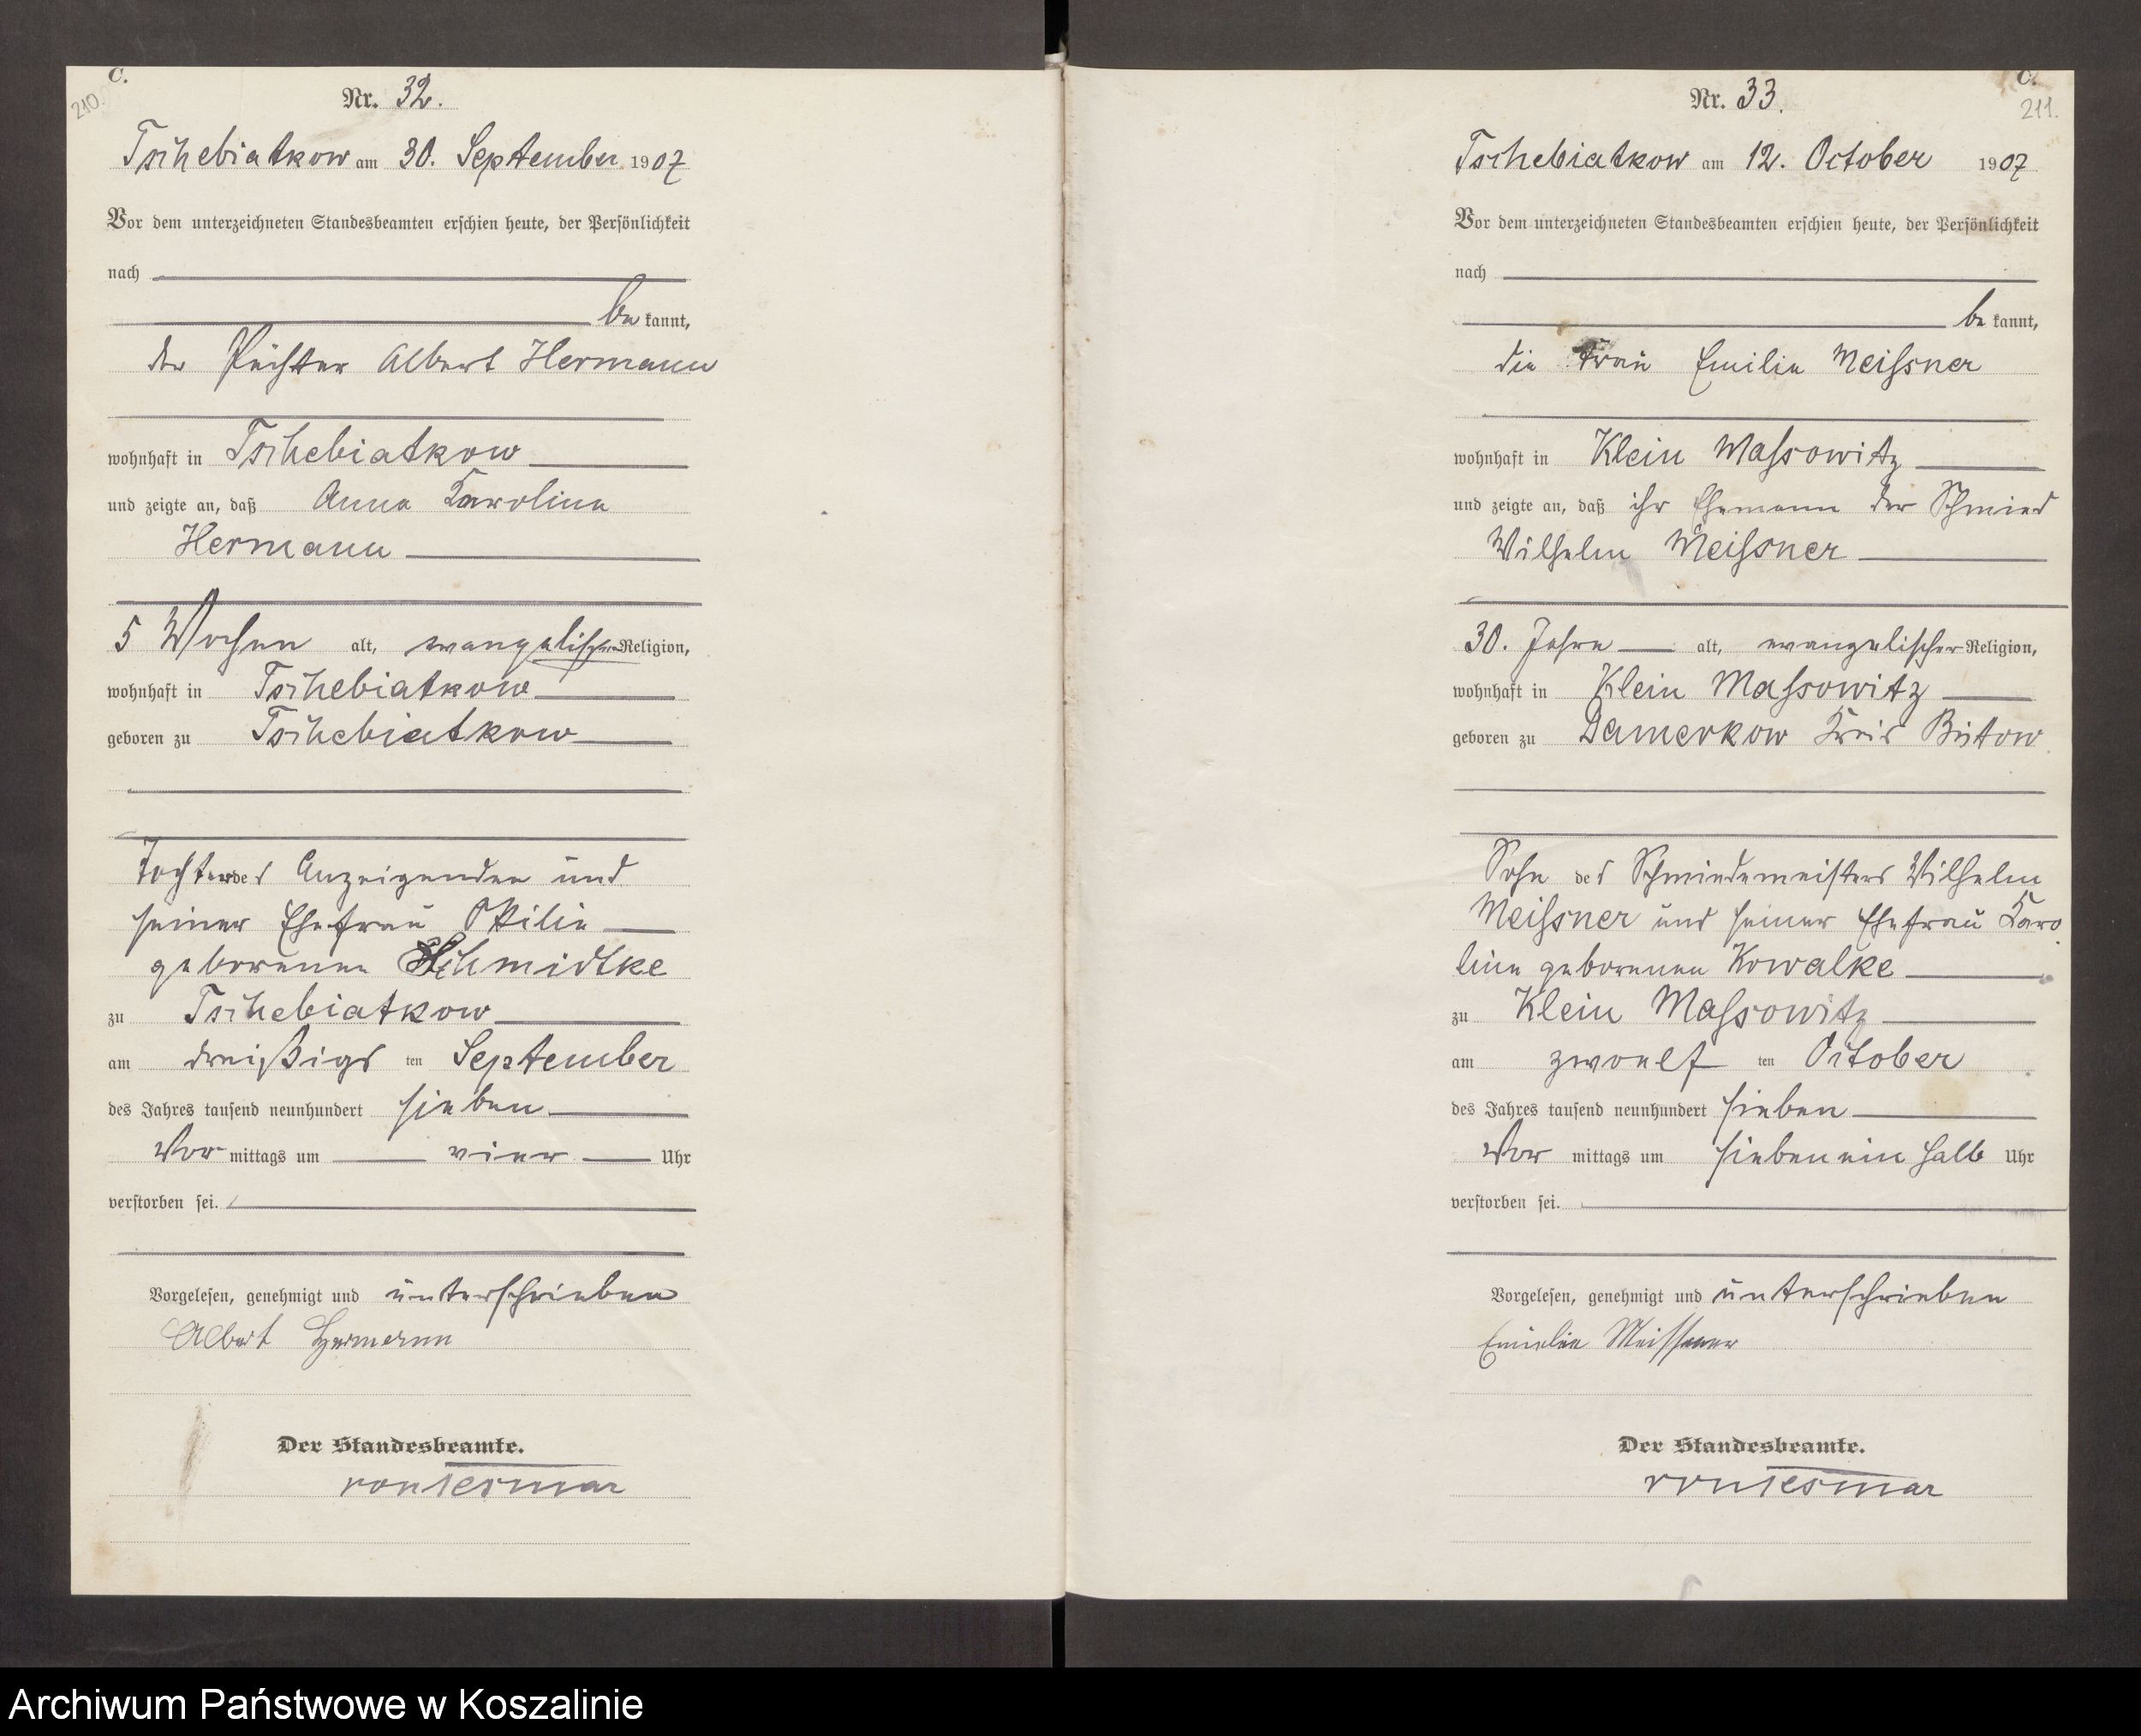 C.
210.
Nr. 32.
Tschebiatkow am 30. September 1907
Vor dem unterzeichneten Standesbeamten erschien heute, der Persönlichkeit
nach
be kannt,
der Pächter Albert Hermann
wohnhaft in Tschebiatkow
und zeigte an, daß Anna Karoline
Hermann
5 Wochen alt, evangelischer Religion,
wohnhaft in Tschebiatkow
geboren zu Tschebiatkow
Tochter des Anzeigenden und
seiner Ehefrau Ottilie
geborenen Schmidtke
zu Tschebiatkow
am dreißigs ten September
des Jahres tausend neunhundert sieben
Vor mittags um vier Uhr
verstorben sei.
Vorgelesen, genehmigt und unterschrieben
Albert Hermann
Der Standesbeamte.
von Tesmar
C.
211.
Nr. 33.
Tschebiatkow am 12. October 1907
Vor dem unterzeichneten Standesbeamten erschien heute, der Persönlichkeit
nach
be kannt,
die Frau Emilie Meissner
wohnhaft in Klein Massowitz
und zeigte an, daß ihr Ehemann der Schmied
Wilhelm Meissner
30. Jahre alt, evangelischer Religion,
wohnhaft in Klein Massowitz
geboren zu Damerkow Kreis Bütow
Sohn des Schmiedemeisters Wilhelm
Meissner und seiner Ehefrau Karo
line geborenen Kowalke
zu Klein Massowitz
am zwoelf ten October
des Jahres tausend neunhundert sieben
Vor mittags um sieben ein halb Uhr
verstorben sei.
Vorgelesen, genehmigt und unterschrieben
Emielie Meissner
Der Standesbeamte.
von Tesmar
Archiwum Państwowe w Koszalinie